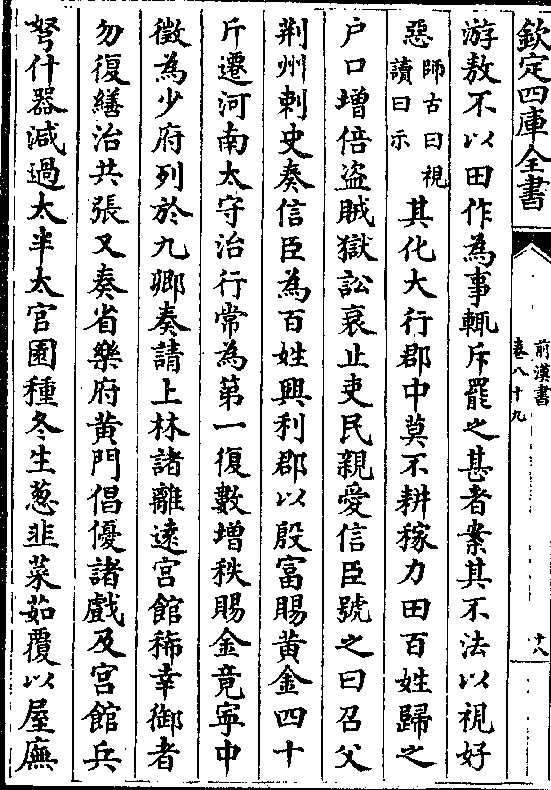 欽定四庫全書
前漢書
卷八十九
十八
游敖不以田作為事輒斥罷之甚者案其不法以視好
惡師古曰視讀曰示其化大行郡中莫不耕稼力田百姓歸之
户口增倍盗賊獄訟衰止吏民親愛信臣號之曰召父
荆州刺史奏信臣為百姓興利郡以殷富賜黄金四十
斤遷河南太守治行常為第一復數增秩賜金竟寧中
徵為少府列於九卿奏請上林諸離逺宫館稀幸御者
勿復繕治共張又奏省樂府黄門倡優諸戲及宫館兵
弩什器減過太半太官園種冬生葱韭菜茹覆以屋廡